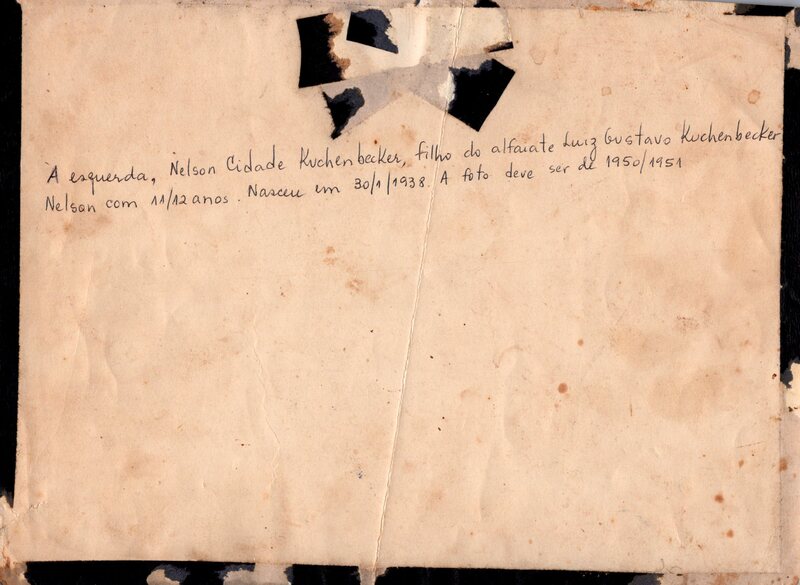 À esquerda, Nelson Cidade Kuchenbecker, filho do alfaiate Luiz Gustavo Kuchenbecker
Nelson com 11/12 anos. Nasceu em 30/1/1938. A foto deve ser de 1950/1951